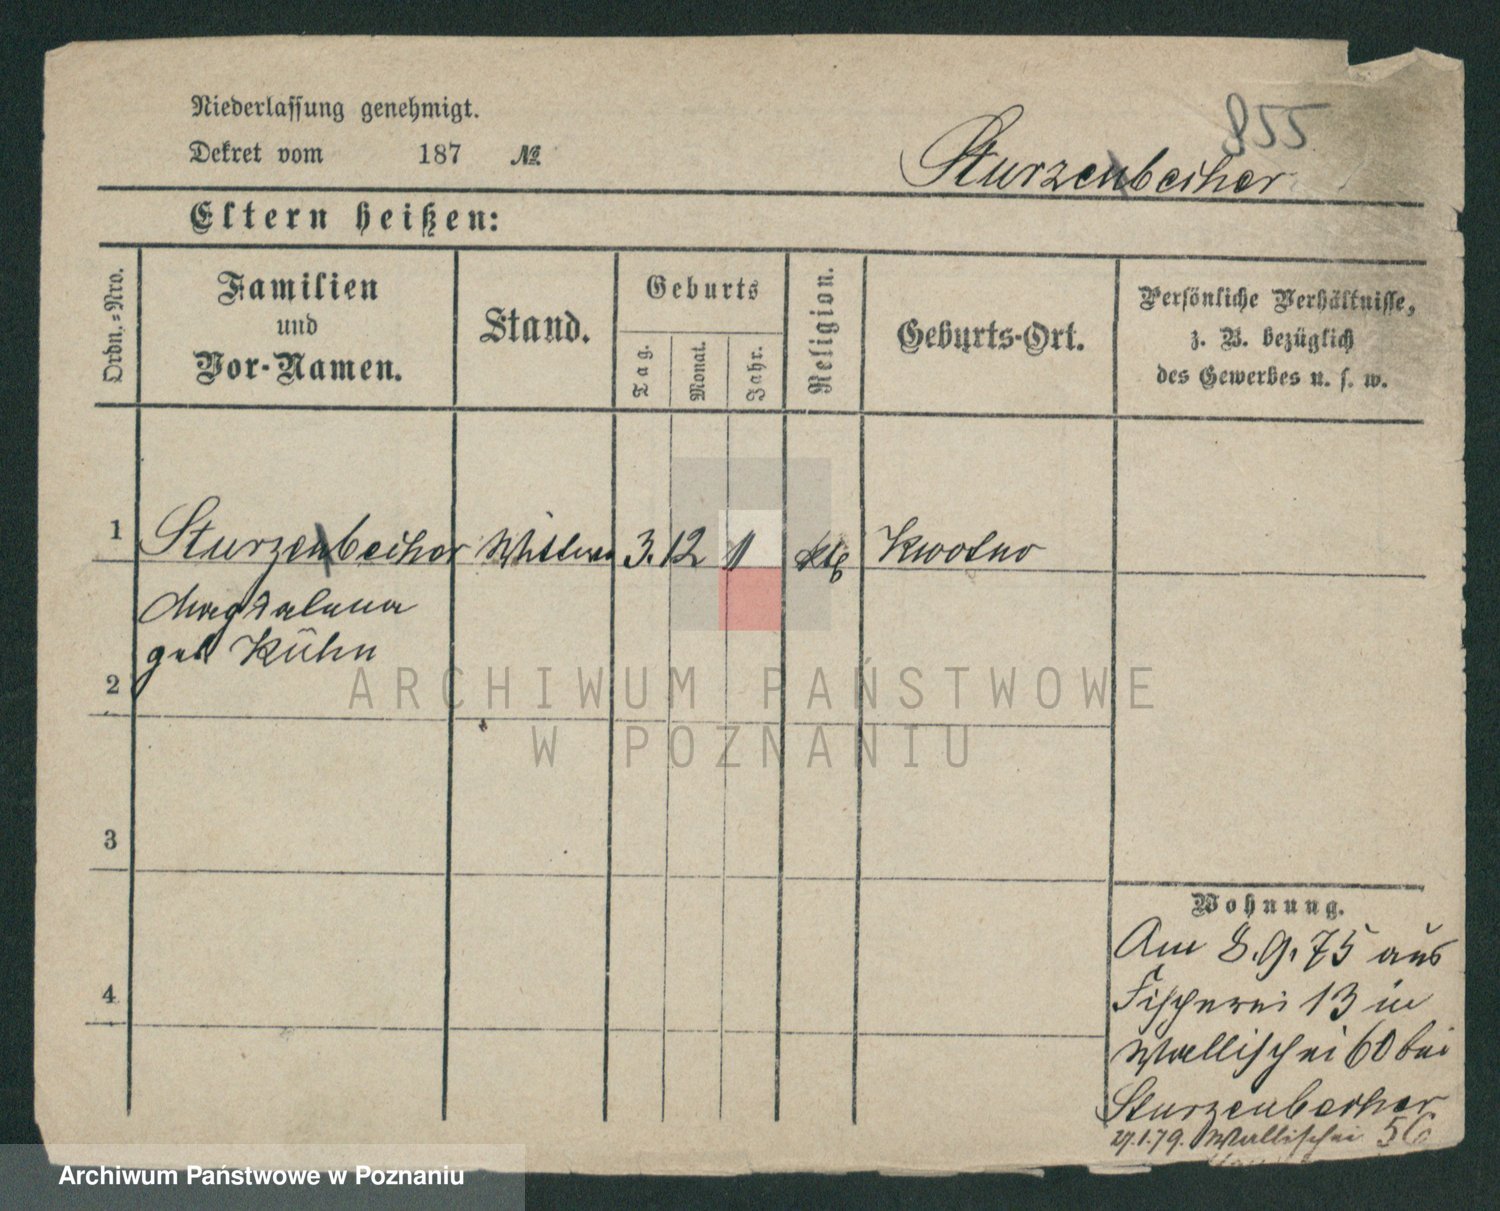 855
Niederlassung genehmigt.
Dekret vom 187 №
Sturzenbecher
Eltern heißen:
Ordn.-Nro.
Familien und Vor-Namen.
Stand.
Geburts
Tag.
Monat.
Jahr.
Religion.
Geburts-Ort.
Persönliche Verhältnisse,
z. B. bezüglich
des Gewerbes u. s. w.
1 Sturzenbecher Wittwe 3. 12 ktg
Magdalena
geb Kühn
2
3
4
Wohnung.
Am 8.9.75 aus
Fischerei 13 in
Wallischei 60 bei
Sturzenbecher
27.1.79. Wallischei 56
ARCHIWUM PAŃSTWOWE
W POZNANIU
Archiwum Państwowe w Poznaniu